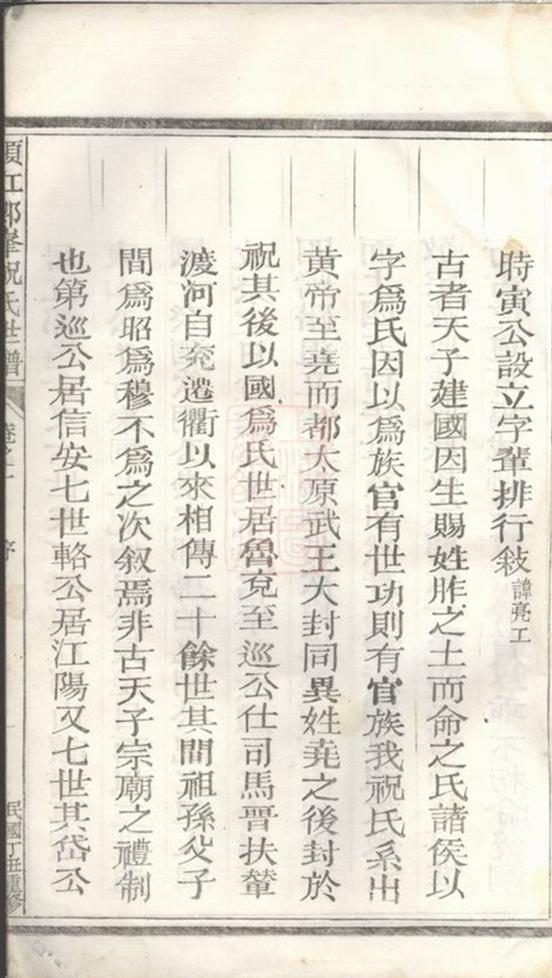 時寅公設立字輩排行敍諱亮工
古者天子建國因生賜姓胙之土而命之氏諸侯以
字爲氏因以爲族官有世功則有官族我祝氏系出
黄帝至堯而都太原武王大封同異姓堯之後封於
祝其後以國爲氏世居魯兗至巡公仕司馬晋扶輦
渡河自兖遷衢以來相傳二十餘世其間祖孫父子
間爲昭爲穆不爲之次叙焉非古天子宗廟之禮制
也第巡公居信安七世輅公居江陽又七世其岱公
江郎峯祝氏世譜 卷之一 序
民國丁丑重修